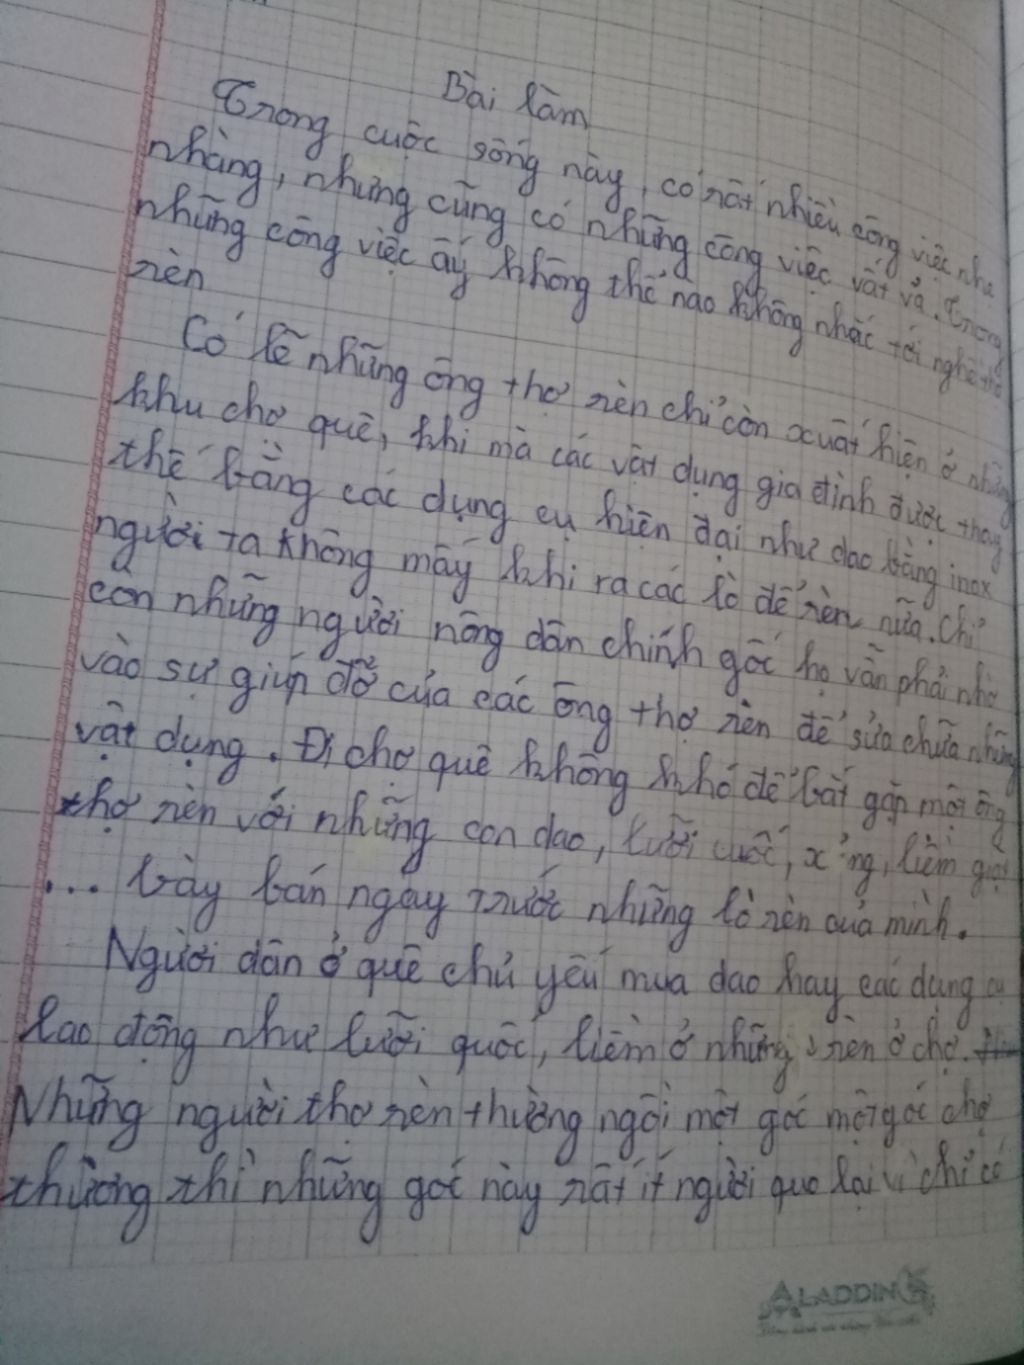 Bài làm
Trong cuộc sống này, có rất nhiều công việc nhẹ
nhàng, nhưng cũng có những công việc vất vả. Trong
những công việc ấy không thể nào không nhắc tới nghề thợ
rèn
Có lẽ những ông thợ rèn chỉ còn xuất hiện ở những
khu chợ quê, khi mà các vật dụng gia đình được thay
thế bằng các dụng cụ hiện đại như dao bằng inox
người ta không mấy khi ra các lò để rèn nữa. Chỉ
còn những người nông dân chính gốc họ vẫn phải nhờ
vào sự giúp đỡ của các ông thợ rèn để sửa chữa những
vật dụng. Đi chợ quê không khó để bắt gặp một ông
thợ rèn với những con dao, lưỡi cuốc, xẻng, liềm gặt
... bày bán ngay trước những lò rèn của mình.
Người dân ở quê chủ yếu mua dao hay các dụng cụ
lao động như lưỡi quốc, liềm ở những rèn ở chợ.
Những người thợ rèn thường ngồi một góc một góc chợ
thường thì những góc này rất ít người qua lại vì chỉ có
ALADDIN